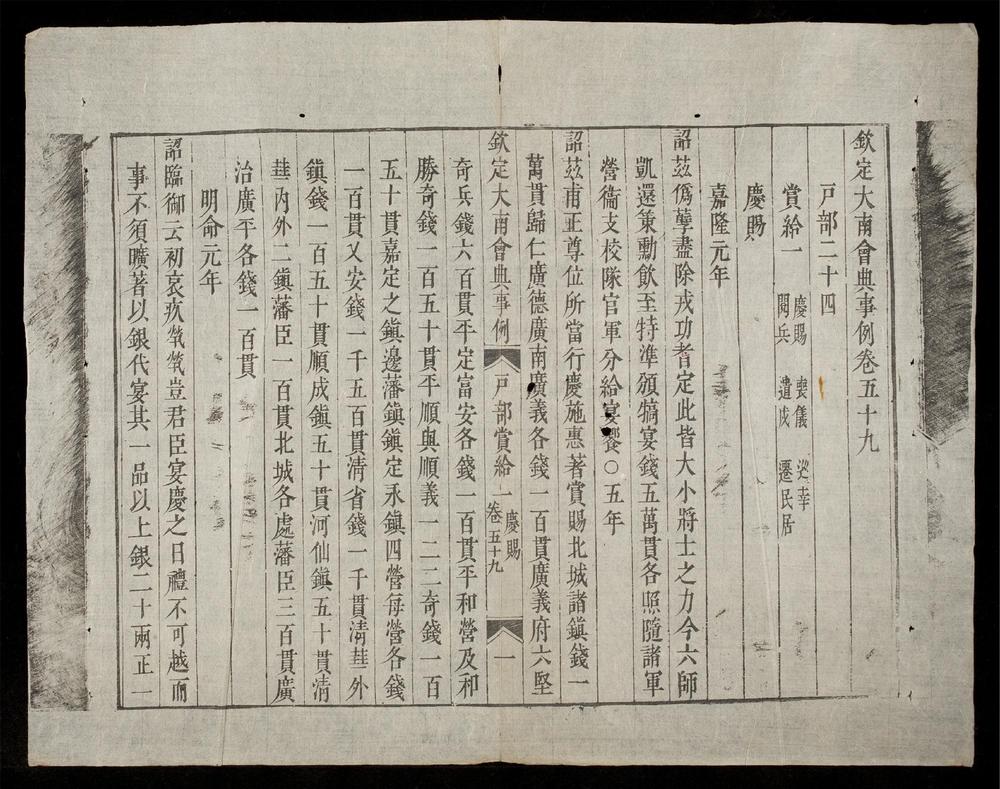 欽定大南會典事例卷五十九
戸部二十四
賞給一 慶賜 喪儀 廵幸
閱兵 遣戍 遷民居
慶賜
嘉隆元年
詔茲僞孽盡除戎功耆定此皆大小將士之力今六師
凱還策勳飲至特準頒犒宴錢五萬貫各照隨諸軍
營衞支校隊官軍分給宴饗○五年
詔茲甫正尊位所當行慶施惠著賞賜北城諸鎮錢一
萬貫歸仁廣德廣南廣義各錢一百貫廣義府六堅
欽定大南會典事例 戸部賞給一 慶賜 卷五十九 一
奇兵錢六百貫平定富安各錢一百貫平和營及和
勝奇錢一百五十貫平順與順義一二三奇錢一百
五十貫嘉定之鎮邊藩鎮鎮定永鎮四營每營各錢
一百貫乂安錢一千五百貫淸省錢一千貫淸華外
鎮錢一百五十貫順成鎮五十貫河仙鎮五十貫淸
華內外二鎮藩臣一百貫北城各處藩臣三百貫廣
治廣平各錢一百貫
明命元年
詔臨御云初哀疚煢煢豈君臣宴慶之日禮不可越而
事不須曠著以銀代宴其一品以上銀二十兩正一